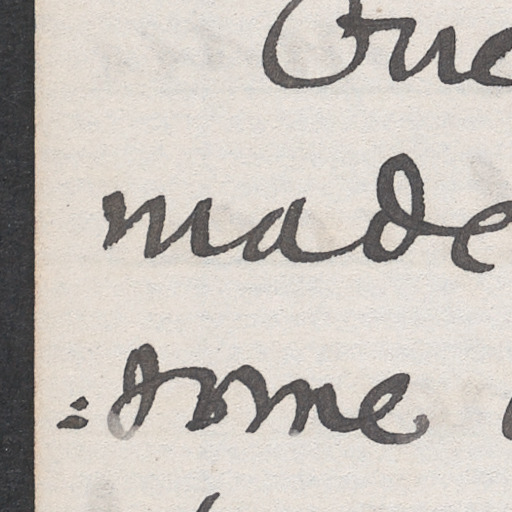 One
made
=some